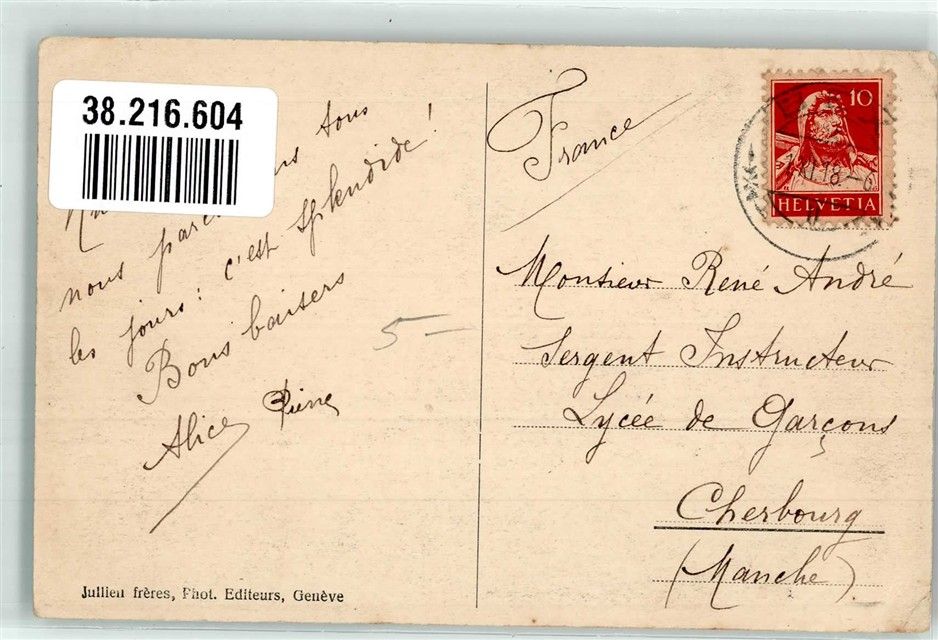 38.216.604
tous
nous
les jours : c'est splendide !
Bons baisers
Alice Pierre
5-
France
10
XI.18-
HELVETIA
Monsieur René André
Sergent Instructeur
Lycée de Garçons
Cherbourg
(Manche)
Jullien frères, Phot. Editeurs, Genève